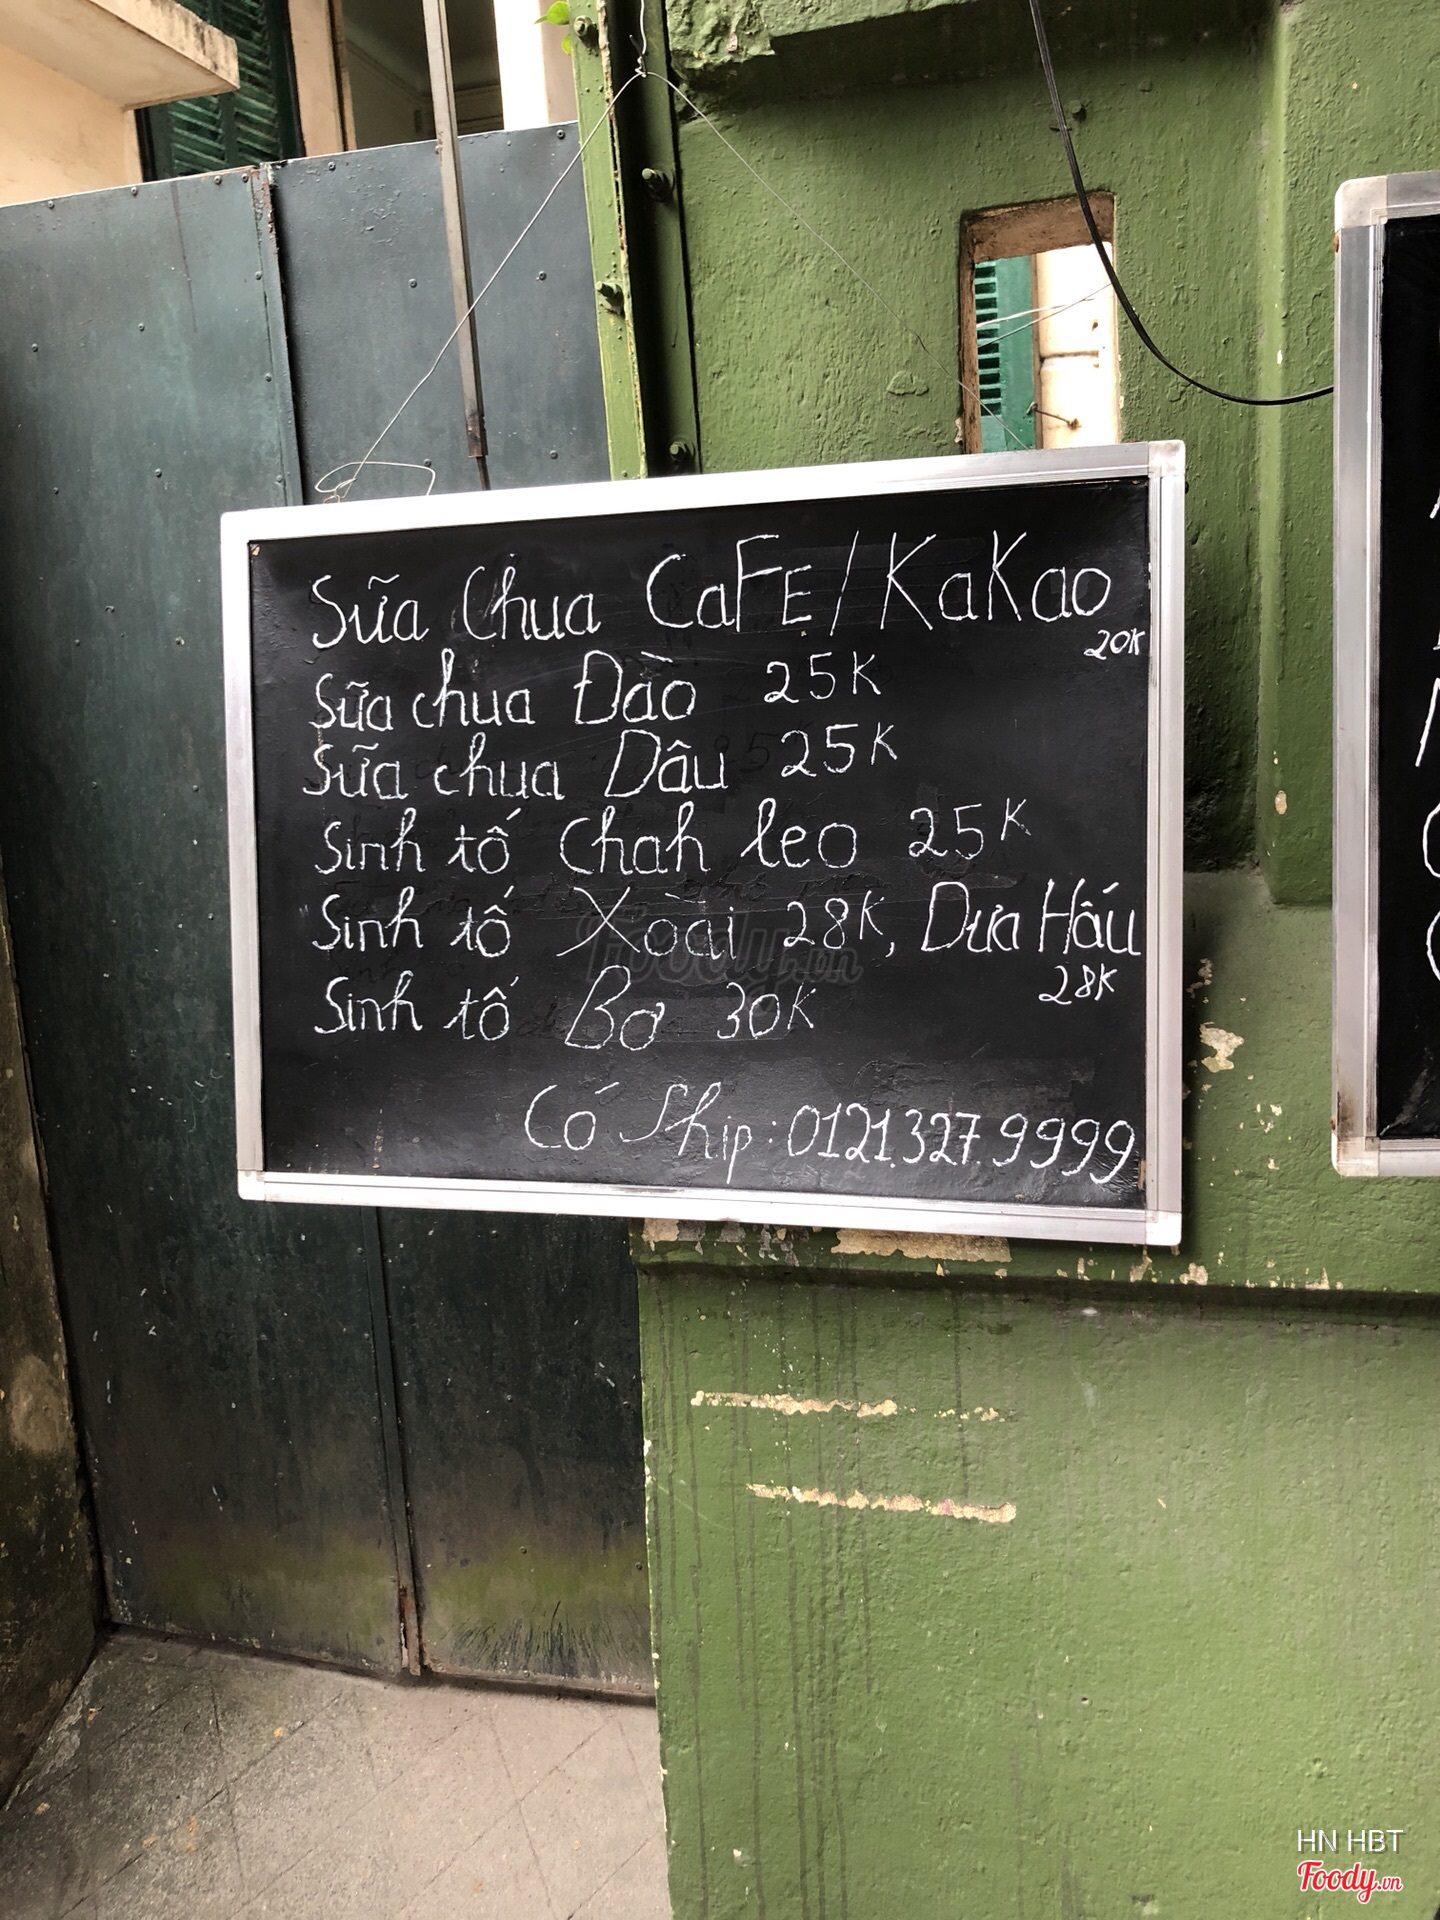 Sữa Chua CaFE/KaKao
20K
Sữa chua Đào 25K
Sữa chua Dâu 25K
Sinh tố Chah leo 25K
Sinh tố Xoài 28K, Dưa Hấu
28K
Sinh tố Bơ 30K
Có Ship: 0121.327.9999
Foody.vn
HN HBT
Foody.vn